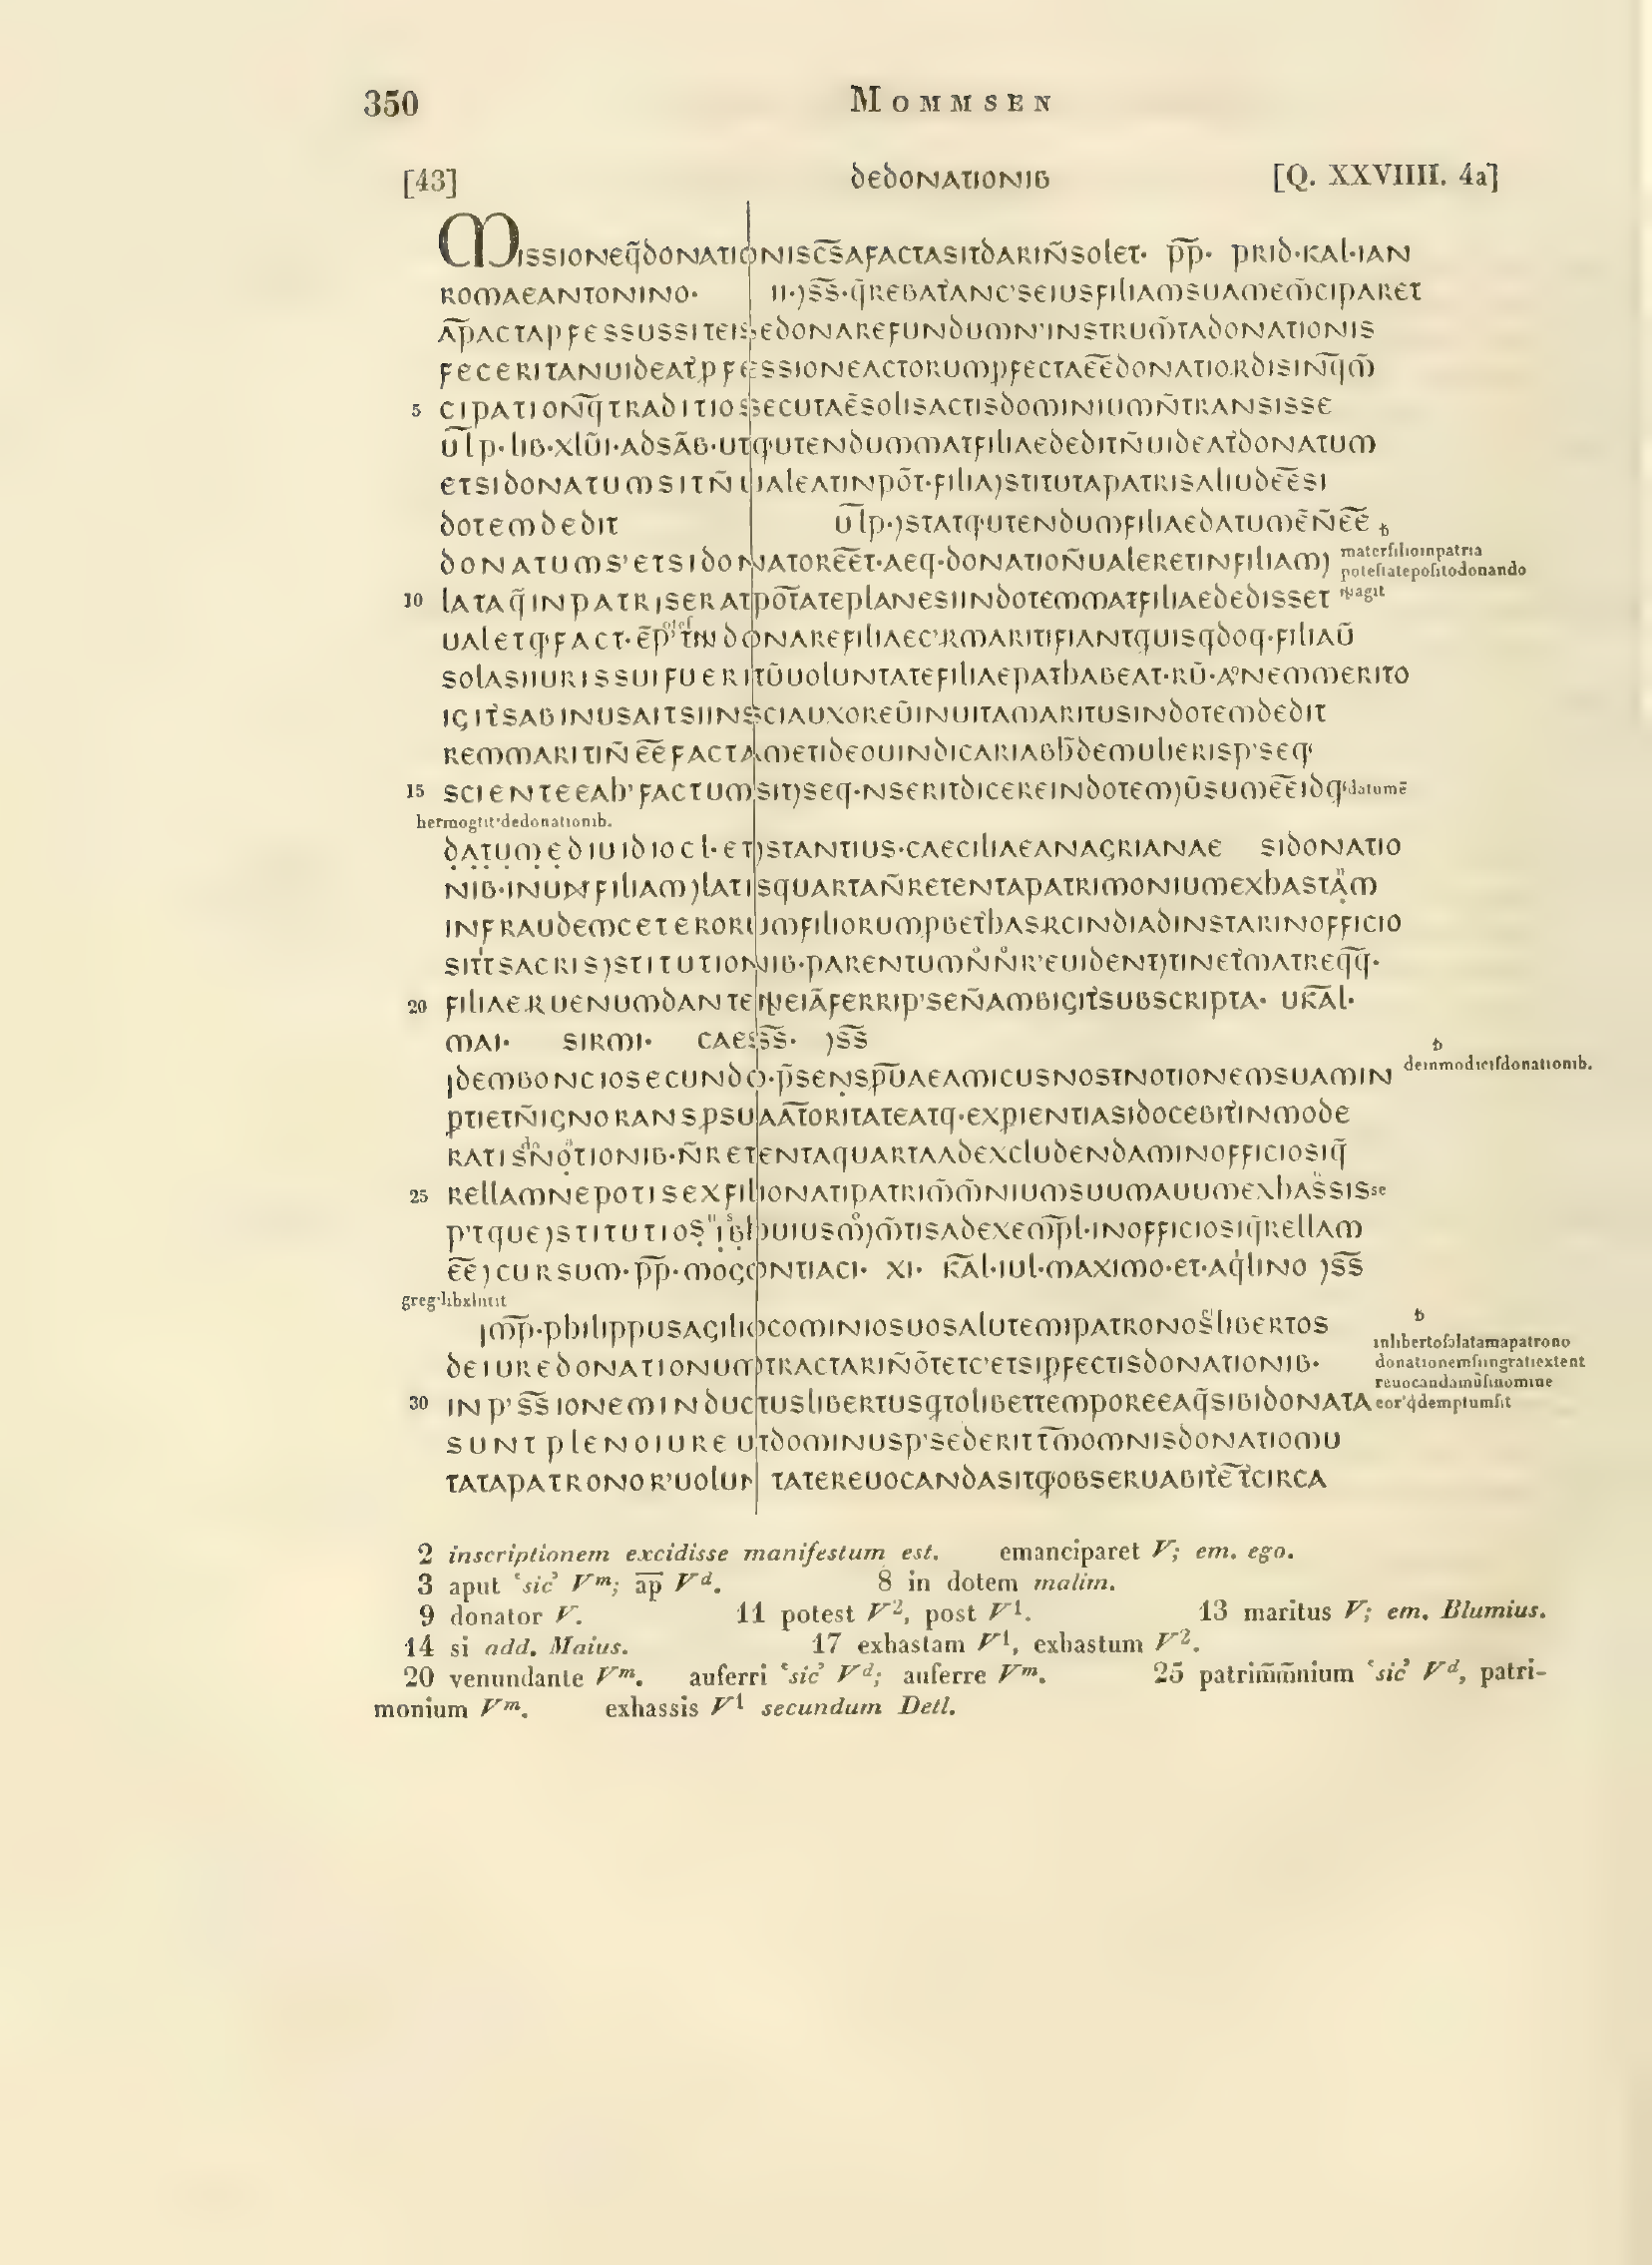 350 MOMMSEN
[43] DEDONATIONIB [Q. XXVIIII. 4a]
MISSIONEq̄DONATIONISCS̄AFACTASITDARIN̄SOLET· P̄P̄· PRID·KAL·IAN
ROMAEANTONINO· II·)S̄S̄·q̄REBAT'ANC'SEIUSFILIAMSUAMEM̄CIPARET
ĀP̄ACTAPFESSUSSITEISEDONAREFUNDUMN'INSTRUM̄TADONATIONIS
FECERITANUIDEAT'PFESSIONEACTORUMPFECTAĒĒDONATIO.RDISIN̄q̄M̄
5 CIPATION̄q̄TRADITIOSSECUTAĒSOLISACTISDOMINIUMN̄TRANSISSE
ŪLP·LIB·XLŪI·ADSĀB·UTq'UTENDUMMATFILIAEDEDITN̄UIDEAT'DONATUM
ETSIDONATUMSITN̄UALEATINPŌT·FILIA)STITUTAPATRISALIUDĒĒSI
DOTEMDEDIT ŪLP·)STATq'UTENDUMFILIAEDATUMĒN̄ĒĒ
DONATUMS'ETSIDONATORĒĒT·AEq·DONATION̄UALERETINFILIAM) materfilioinpatria
poteſtatepoſitodonando
10 LATAq̄INPATRISERATPŌTATEPLANESIINDOTEMMATFILIAEDEDISSET nħagit
UALETq'FACT·ĒP'T̄IN DONAREFILIAEC'RMARITIFIANTqUISqDOq·FILIAŪ
SOLASIIURISSUIFUERITŪUOLUNTATEFILIAEPAThABEAT·RŪ·A°NEMMERITO
IGIT'SABINUSAITSIINSCIAUXOREŪINUITAMARITUSINDOTEMDEDIT
REMMARITIN̄ĒĒFACTAMETIDEOUINDICARIABħDEMULIERISP'SEq'
15 SCIENTEEAh'FACTUMSIT)SEq·NSERITDICEREINDOTEM)ŪSUMĒĒIDq'datumē
hermogtit'dedonationib.
DATUMEDIUIDIOCL·ET)STANTIUS·CAECILIAEANAGRIANAE SIDONATIO
NIB·INUNFILIAM)LATISqUARTAN̄RETENTAPATRIMONIUMEXhASTAM
INFRAUDEMCETERORUMFILIORUMPBET'hASRCINDIADINSTARINOFFICIO
SIT'TSACRIS)STITUTIONIB·PARENTUMN̊N̊R'EUIDENT)TINET'MATREq̄q̄·
20 FILIAE.RUENUMDANTENħEIĀFERRIP'SEN̄AMBIGIT'SUBSCRIPTA· UK̄AL·
MAI· SIRMI· CAESS̄S̄· )S̄S̄
IDEMBONCIOSECUNDO·P̄SENSP̄ŪAEAMICUSNOSTNOTIONEMSUAMIN deinmodiciſdonationib.
PTIETN̄IGNORANSPSUAĀT̄ORITATEATq·EXPIENTIASIDOCEBIT'INMODE
RATISNOTIONIB·N̄RETENTAqUARTAADEXCLUDENDAMINOFFICIOSIq̄
25 RELLAMNEPOTISEXFILIONATIPATRIM̄M̄NIUMSUUMAUUMEXhASSISse
P'TqUE)STITUTIOS hUIUSM°)M̄TISADEXEM̄PL·INOFFICIOSIq̄RELLAM
ĒĒ)CURSUM·P̄P̄·MOGONTIACI· XI· K̄AL·IUL·MAXIMO·ET·Aq'LINO )S̄S̄
greg·libxiiitit
IM̄P̄·PhILIPPUSAGILIOCOMINIOSUOSALUTEMIPATRONOSLIBERTOS inlibertoſɔlatamapatrono
DEIUREDONATIONUM)TRACTARIN̄ŌTETC'ETSIPFECTISDONATIONIB· donationemſiingratiextent
reuocandamūſinomine
30 INP'S̄S̄IONEMINDUCTUSLIBERTUSqTOLIBETTEMPOREEAq̄SIBIDONATA eor'q'demptumſit
SUNTPLENOIUREUTDOMINUSP'SEDERITT̄M̄OMNISDONATIOMU
TATAPATRONOR'UOLUNTATEREUOCANDASITq'OBSERUABIT'ĒT̄CIRCA
2 inscriptionem excidisse manifestum est. emanciparet V; em. ego.
3 aput 'sic' Vᵐ; a͞p Vᵈ. 8 in dotem malim.
9 donator V. 11 potest V², post V¹. 13 maritus V; em. Blumius.
14 si add. Maius. 17 exhastam V¹, exhastum V².
20 venundante Vᵐ. auferri 'sic' Vᵈ; auferre Vᵐ. 25 patrim̄m̄nium 'sic' Vᵈ, patri-
monium Vᵐ. exhassis V¹ secundum Detl.